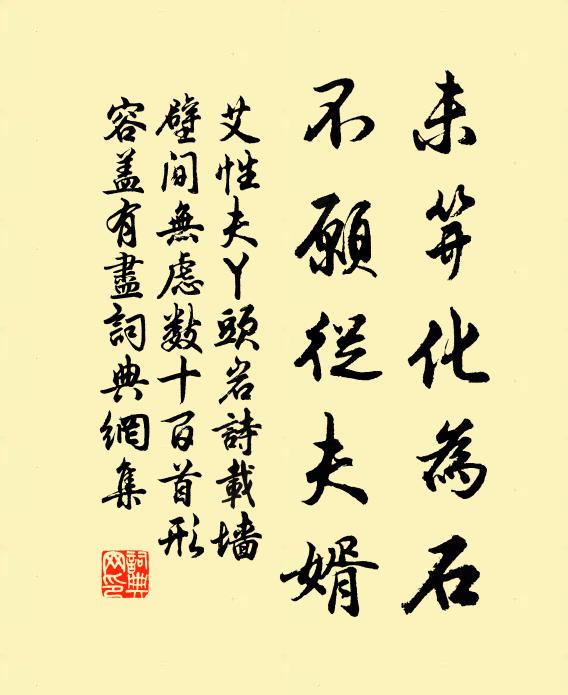 未笄化為石
不願從夫婿
艾性夫丫頭岩詩載墻
壁间無慮数十百首形
容盖有盡詞典網集
詞典
网印